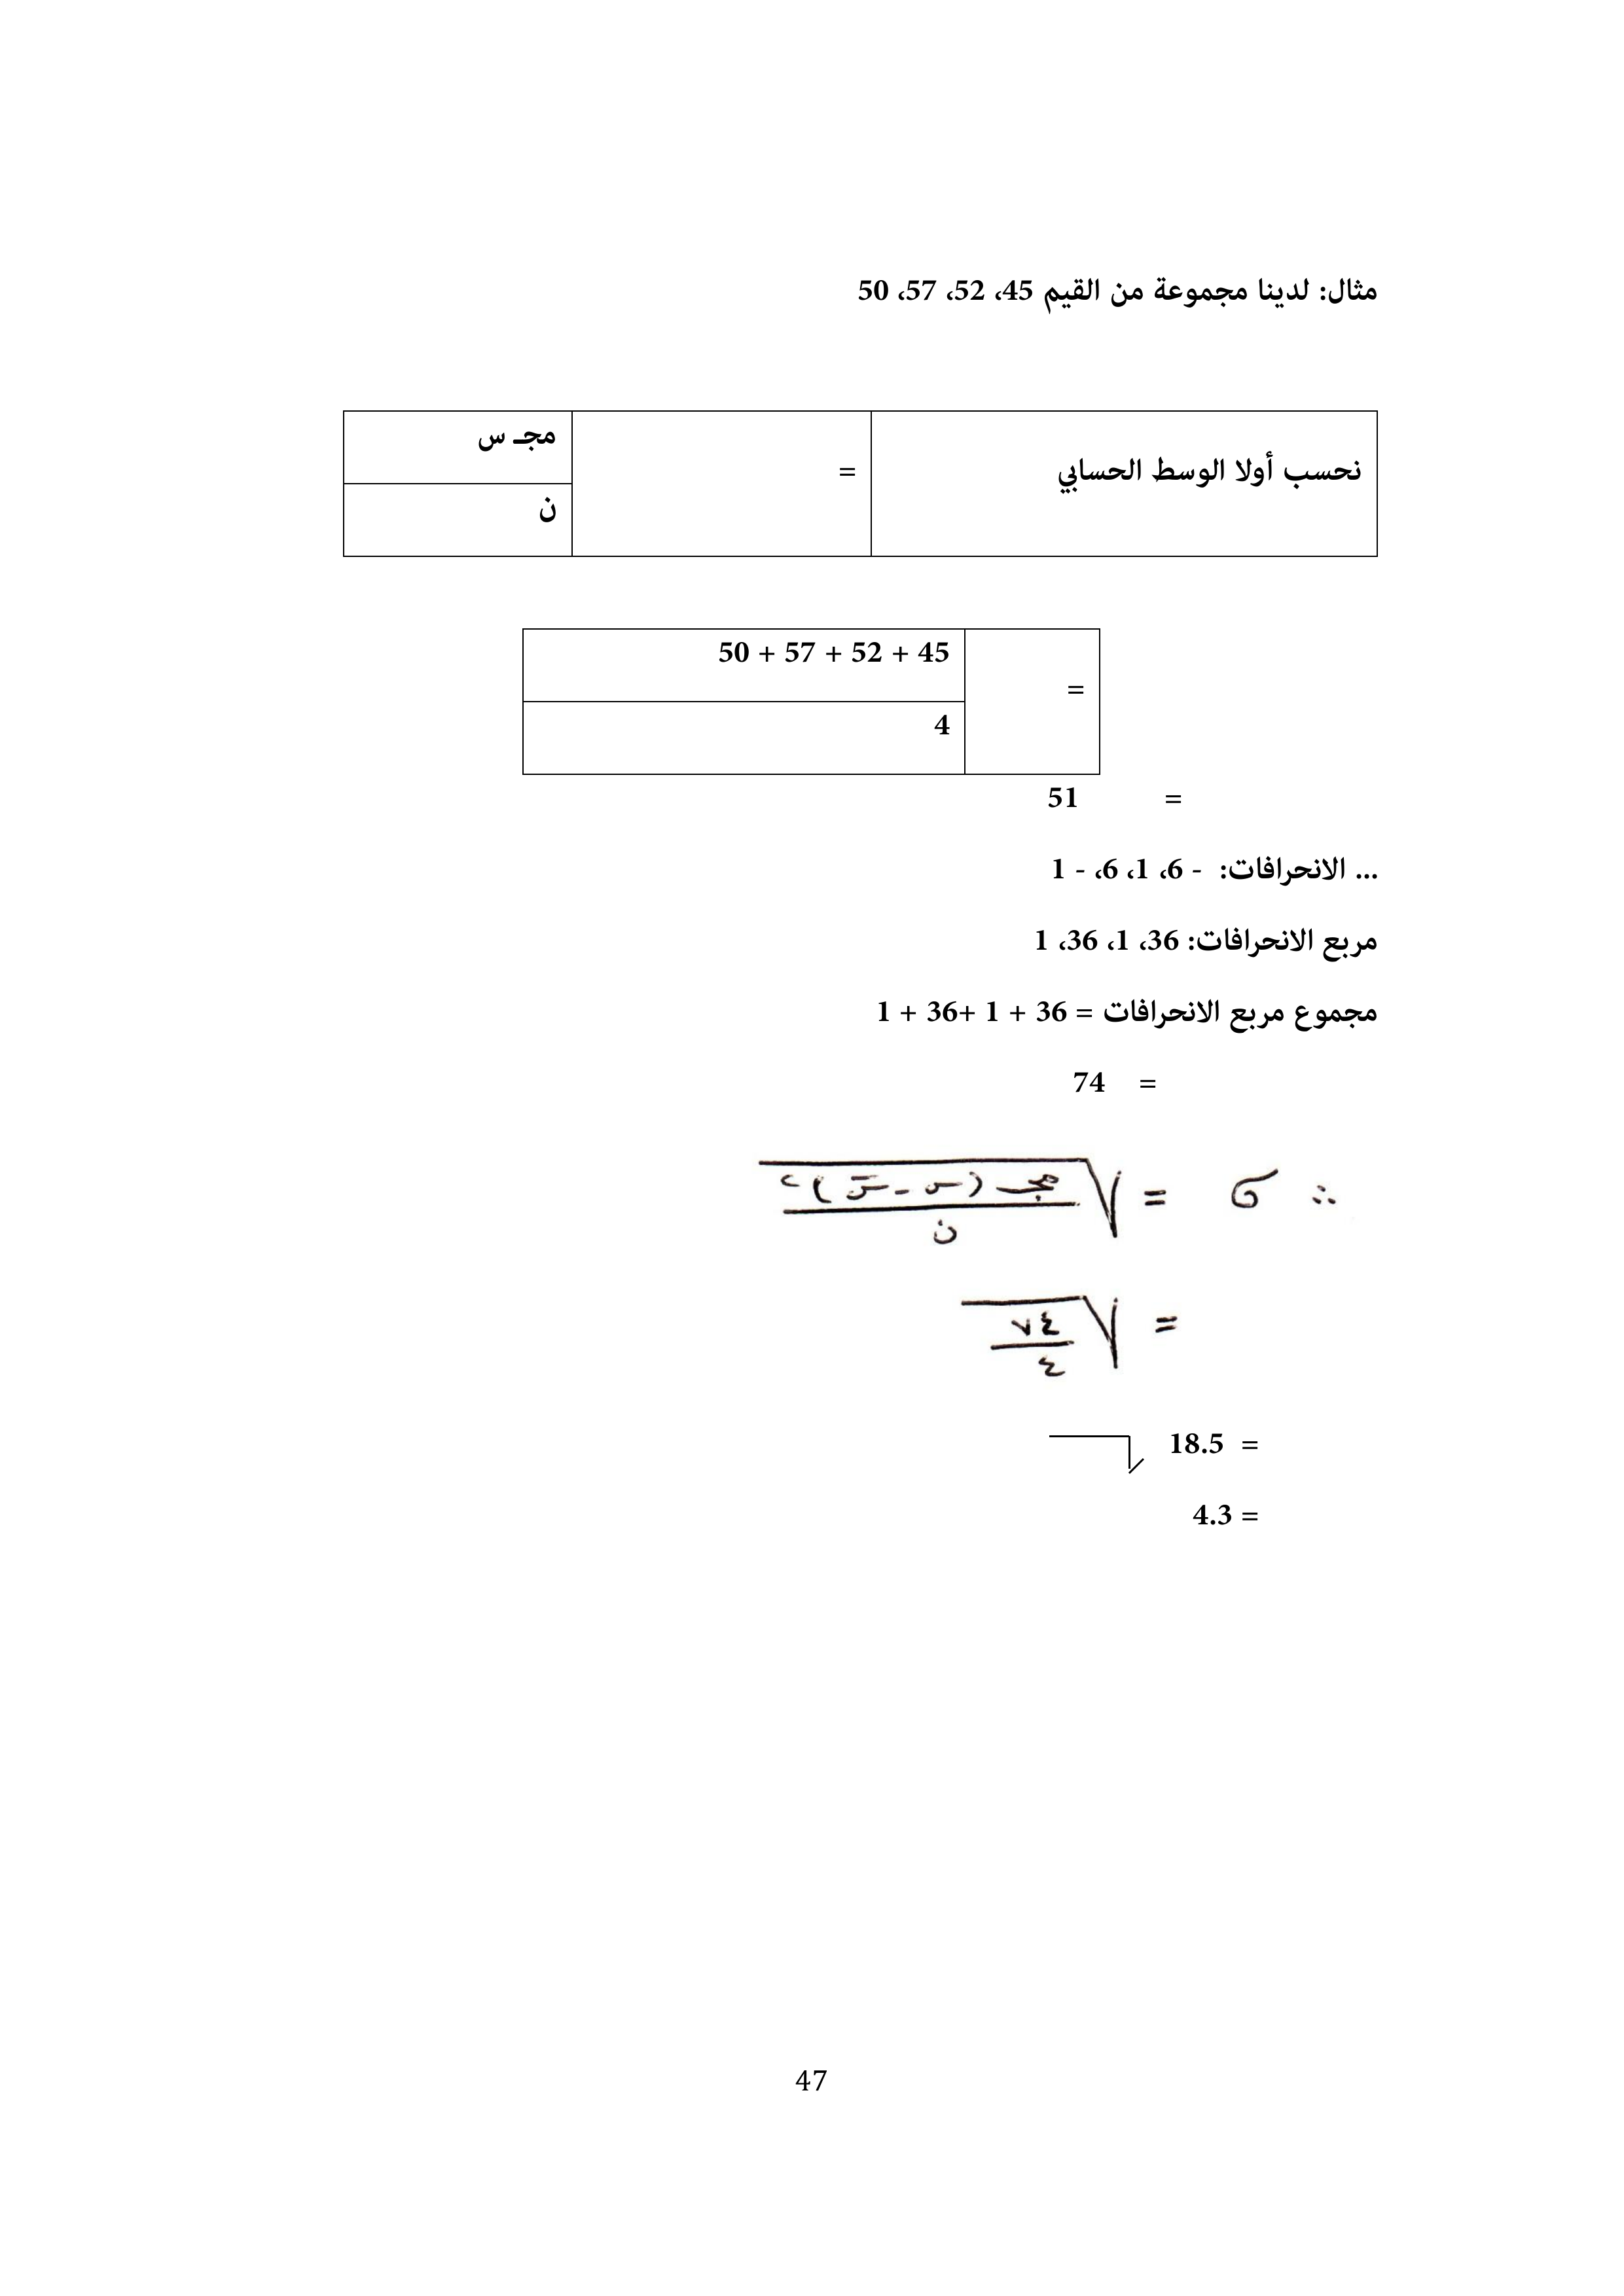 مثال: لدينا مجموعة من القيم 45، 52، 57، 50
مجـ س
نحسب أولا الوسط الحسابي =
ن
45 + 52 + 57 + 50
=
4
= 51
... الانحرافات: - 6، 1، 6، - 1
مربع الانحرافات: 36، 1، 36، 1
مجموع مربع الانحرافات = 36 + 1 +36 + 1
= 74
∴ σ = √ مجـ (س - س̄)٢
ن
= √ ٧٤
٤
= 18.5 √
= 4.3
47